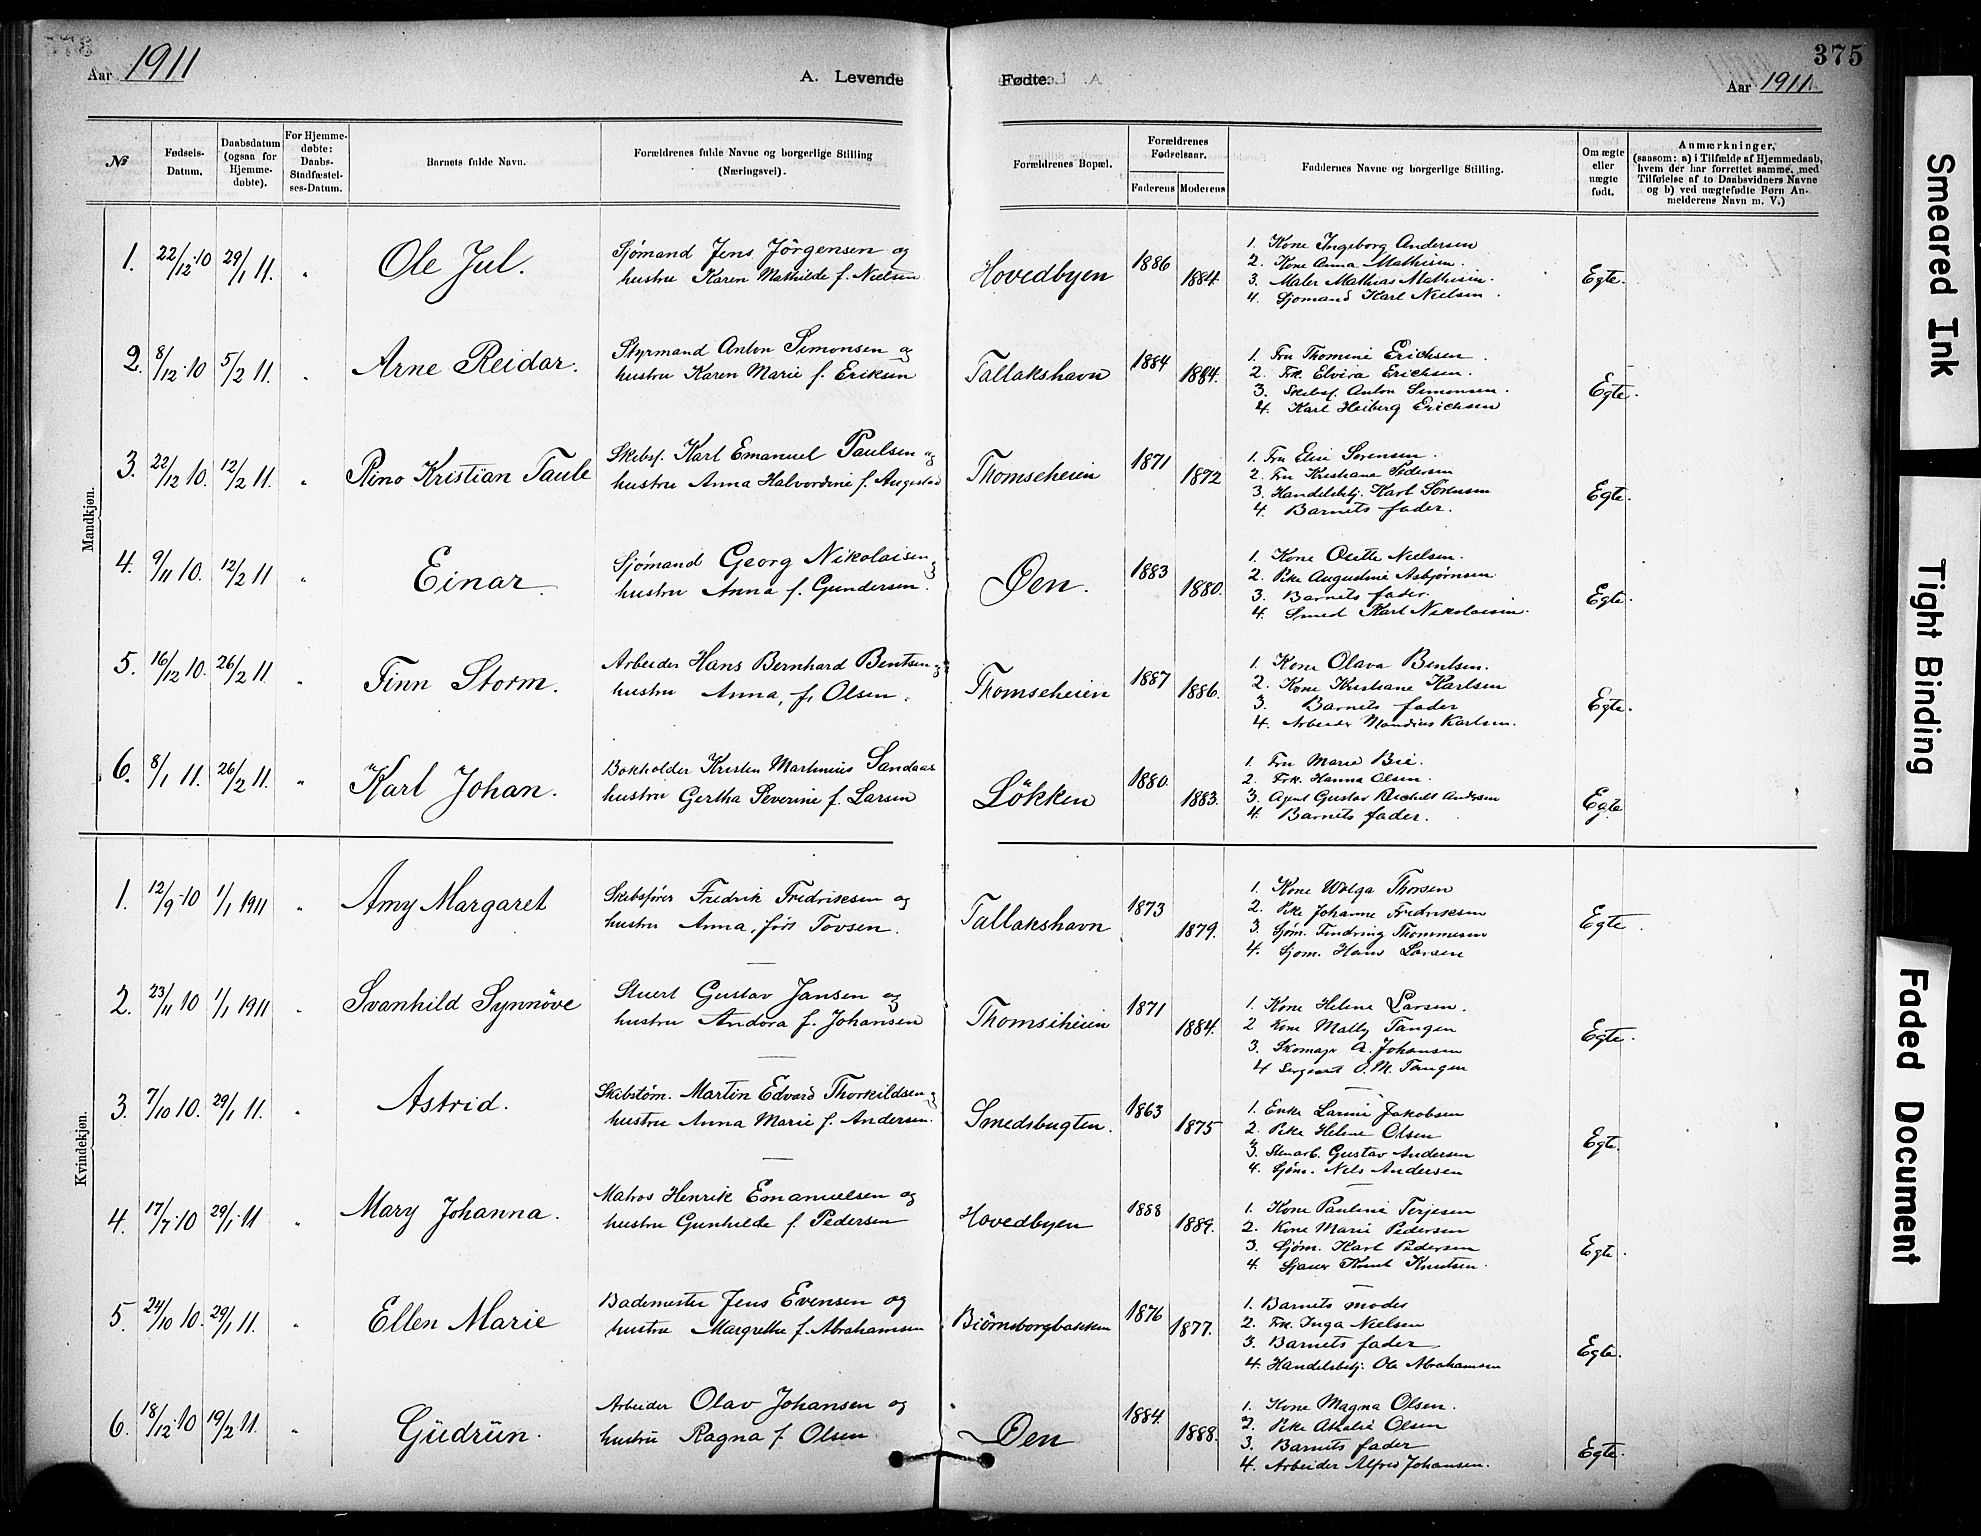 375
Aar 1911
A. Levende
Fødte.
Aar 1911
№
Fødsels-Datum.
Daabsdatum (ogsaa for Hjemmedøbte).
For Hjemmedøbte: Daabs-Stadfæstelses-Datum.
Barnets fulde Navn.
Forældrenes fulde Navne og borgerlige Stilling (Næringsvei).
Forældrenes Bopæl.
Forældrenes Fødselsaar.
Faderens
Moderens
Faddernes Navne og borgerlige Stilling.
Om ægte eller uægte født.
Anmærkninger,
(saasom: a) i Tilfælde af Hjemmedaab,
hvem der har forrettet samme, med
Tilføielse af to Daabsvidners Navne
og b) ved uægtefødte Børn An-
melderens Navn m. V.)
Mandkjøn.
1. 22/12 10 29/1 11. " Ole Jul.
Sjømand Jens Jörgensen og
hustru Karen Mathilde f. Nielsen
Hovedbyen 1886 1884.
1. Kone Ingeborg Andersen
2. Kone Anna Mathisen.
3. Maler Mathias Mathisen.
4. Sjømand Karl Nielsen.
Egte.
2. 8/12 10 5/2 11. " Arne Reidar.
Styrmand Anton Simonsen og
hustru Karen Marie f. Eriksen
Tallakshavn 1884 1884.
1. Fru Thomine Erichsen.
2. Frk. Elvira Erichsen.
3. Skibsf. Anton Simonsen.
4. Karl Heiberg Erichsen
Egte.
3. 22/12 10. 12/2 11. " Rino Kristian Taule
Skibsf. Karl Emanuel Paulsen og
hustru Anna Halvordine f. Augestad
Thomseheien 1871 1872
1. Fru Elise Sørensen.
2. Fru Kristiane Pedersen
3. Handelsbtj. Karl Sørensen
4. Barnets fader.
Egte.
4. 9/11 10. 12/2 11 " Einar.
Sjømand Georg Nikolaisen og
hustru Anna f. Gundersen.
Øen. 1883 1880.
1. Kone Nielsen.
2. Pike Augustine Asbjørnsen
3. Barnets fader.
4. Smed Karl Nikolaisen.
Egte.
5. 16/12 10. 26/2 11 " Finn Storm.
Arbeider Hans Bernhard Bentsen og
hustru Anna, f. Olsen.
Thomseheien 1887 1886.
1. Kone Olava Bentsen.
2. Kone Kristiane Karlsen
3. Barnets fader
4. Arbeider Karlsen.
Egte.
6. 8/1 11. 26/2 11. " Karl Johan.
Bokholder Kristen Martinius Sandaas
hustru Gertha Severine f. Larsen
Løkken 1880. 1883.
1. Fru Marie Bie.
2. Frk. Hanna Olsen.
3. Agent Gustav Andersen
4. Barnets fader.
Egte
Kvindekjøn.
1. 12/9 10 1/1 1911 " Amy Margaret
Skibsfører Fredrik Fredriksen og
hustru Anna, født Tovsen.
Tallakshavn 1873 1879.
1. Kone Wolga Thorsen
2. Pike Johanne Fredriksen
3. Sjøm. Thommesen
4. Sjøm. Hans Larsen
Egte.
2. 23/11 10 1/1 1911 " Svanhild Synnöve
Stuert Gustav Jansen og
hustru Andora f. Johansen
Thomsiheien 1871 1884.
1. Kone Helene Larsen.
2 Kone Mally Tangen
3. Skomagr A. Johansen
4 Sergeant O. M. Tangen
Egte.
3. 7/10 10. 29/1 11. " Astrid.
Skibstøm. Martin Edvard Thorkildsen og
hustru Anna Marie f. Andersen.
Smedsbugten. 1863 1875
1. Enke Larine Jakobsen
2. Pike Helene Olsen
3. Stenarb. Gustav Andersen
4. Sjøm. Nels Andersen
Egte.
4. 17/7 10 29/1 11 " Mary Johanna.
Matros Henrik Emanuelsen og
hustru Gunhilde f. Pedersen
Hovedbyen 1888 1889.
1. Kone Pauline Terjesen
2. Kone Marie Pedersen
3. Sjøm. Karl Pedersen
4. Sjauer Knut Knutsen.
Egte.
5. 24/10 10. 29/1 11. " Ellen Marie
Bademester Jens Evensen og
hustru Margrethe f. Abrahamsen
Biørnsborgbakken 1876 1877.
1. Barnets moder
2. Frk. Inga Nielsen
3. Barnets fader
4. Handelsbetj. Ole Abrahamsen
Egte.
6. 18/12 10 19/2 11. " Gudrun.
Arbeider Olav Johansen og
hustru Ragna f. Olsen
Øen 1884. 1888.
1. Kone Magna Olsen.
2. Pike Athalie Olsen
3. Barnets fader
4. Arbeider Alfred Johansen.
Egte.
Smeared Ink
Tight Binding
Faded Document